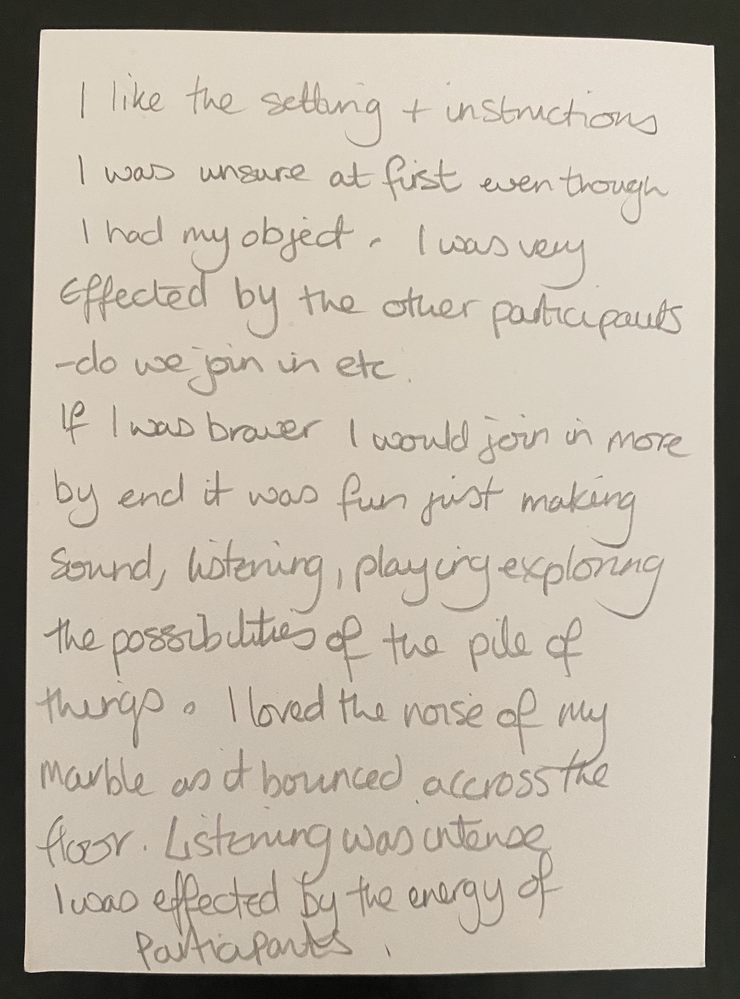 I like the setting + instructions
I was unsure at first even though
I had my object. I was very
Effected by the other participants
-do we join in etc.
If I was braver I would join in more
by end it was fun just making
Sound, listening, playing exploring
the possibilities of the pile of
things. I loved the noise of my
marble as it bounced accross the
floor. Listening was intense
I was effected by the energy of
Participants.